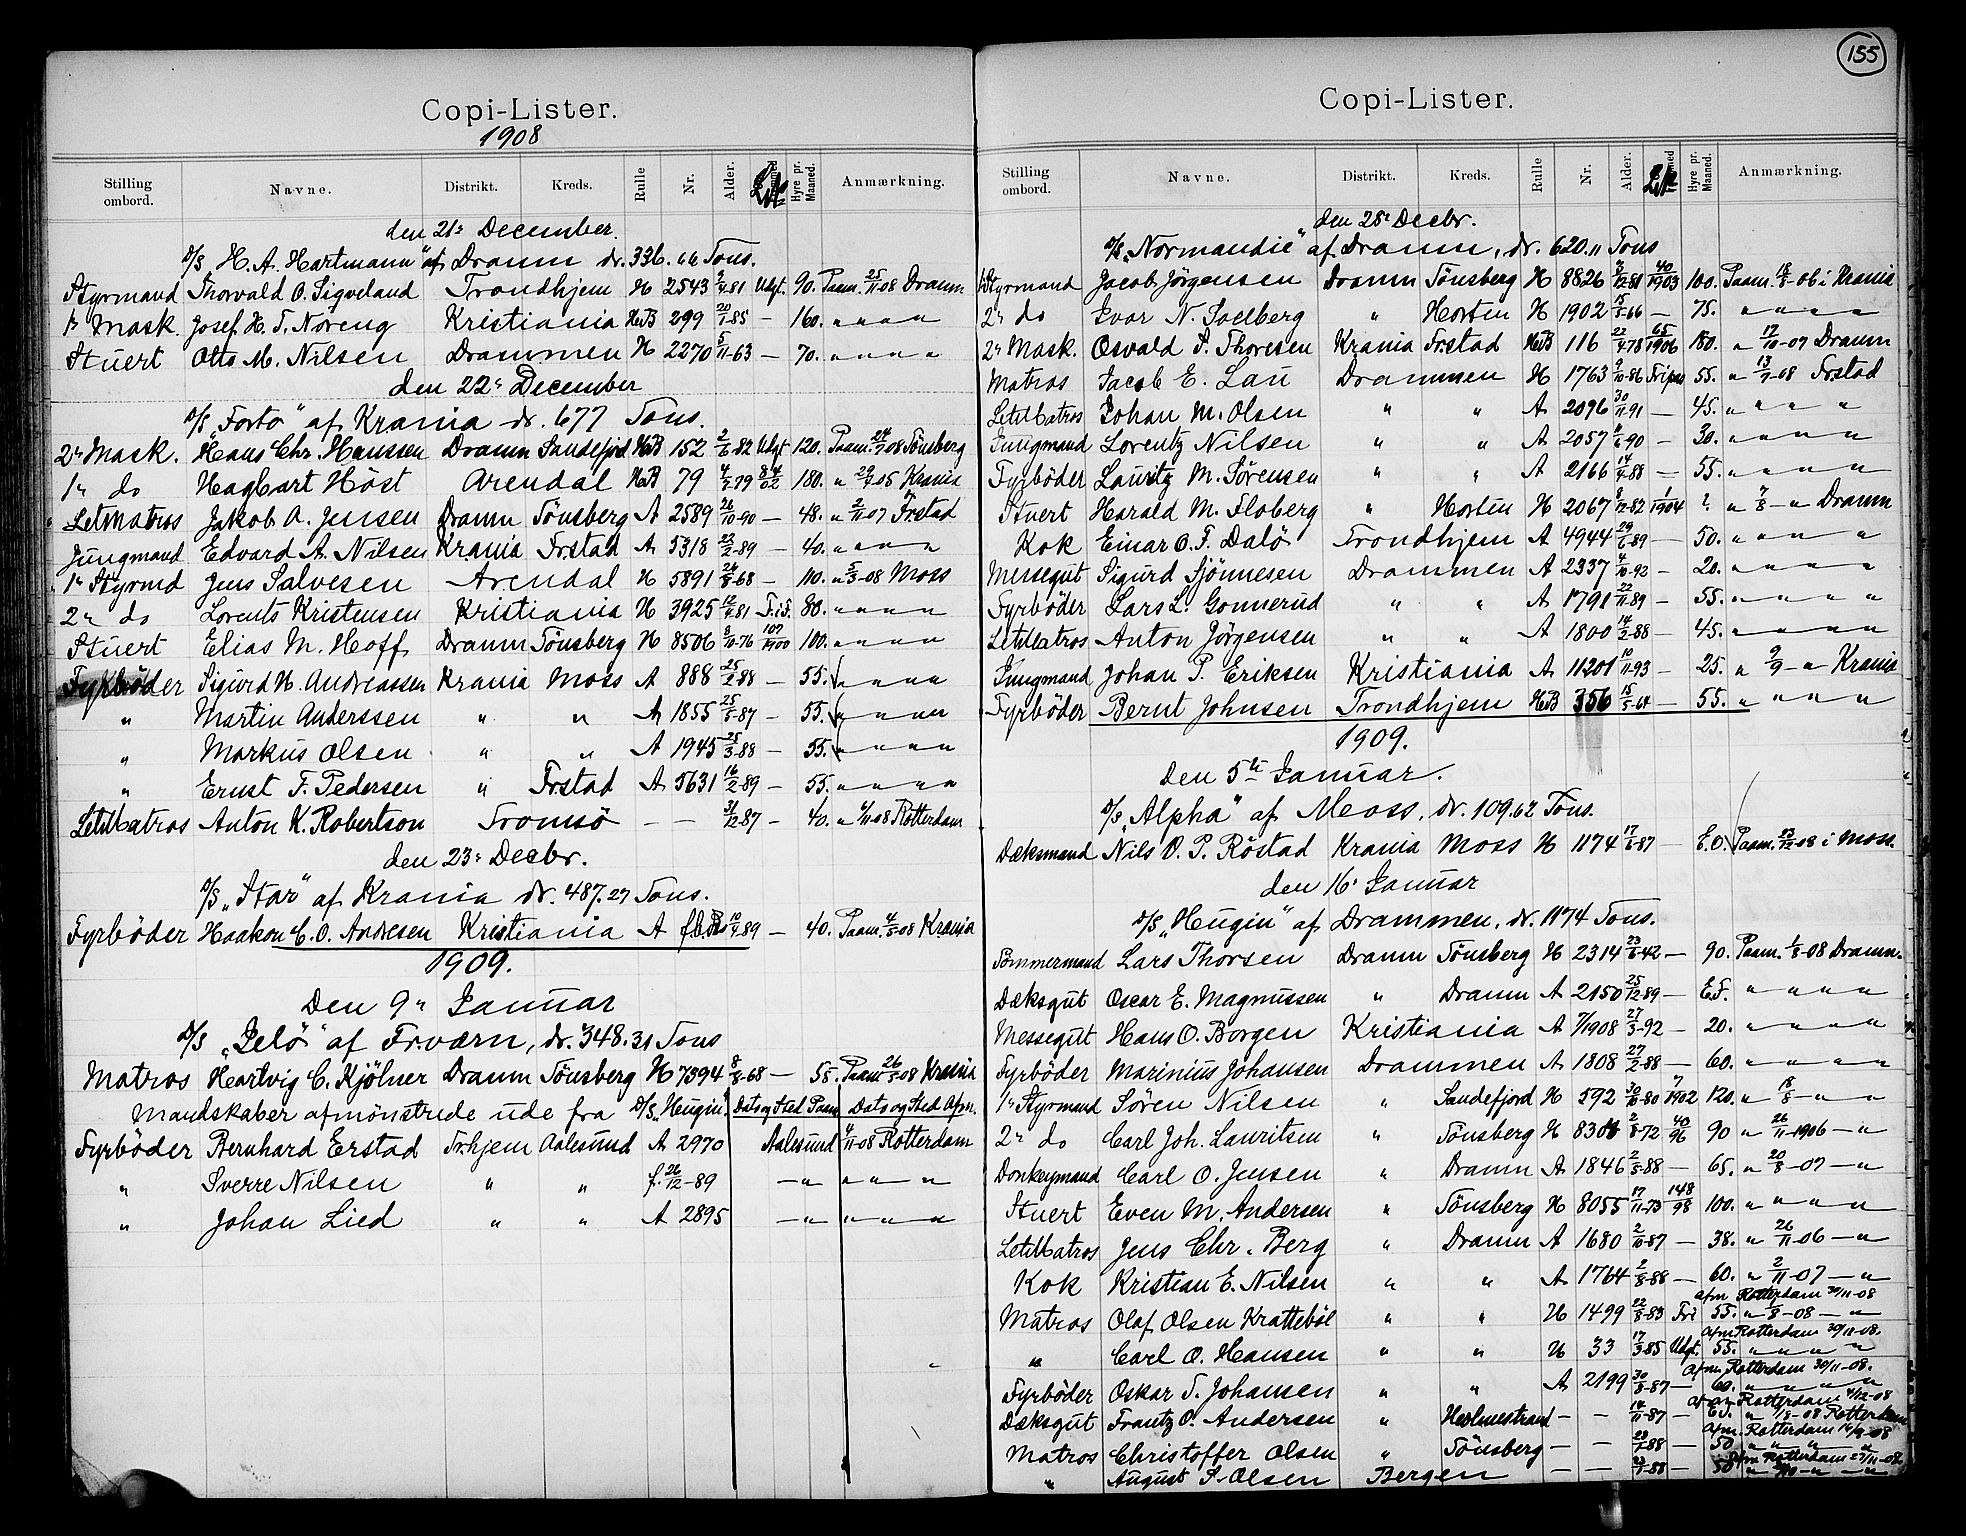 Copi-Lister.
1908
Stilling ombord. Navne. Distrikt. Kreds. Rulle Nr. Alder. Hyre pr. Maaned. Anmærkning.
den 21de December.
D/S „H. A. Hartmann" af Dramm dr. 336.66 Tons.
Styrmand Thorvald O. Sigveland Trondhjem H 2543 81 Udgt. 90. Paam. 25/11-08 Dramm
1ste Mask. Josef H. T. Noreng Kristiania HdB 299 20/1-85 — 160. " " " "
Stuert Otto M. Nilsen Drammen H 2270 5/11-63 — 70. " " " "
den 22de December
D/S „Forto" af Krania dr. 677 Tons.
2den Mask. Hans Chr. Hanssen Dramm Sandefjord HdB 152 2/6-82 Udgt 120. Paam. 24/7-08 Tönsberg
1ste do Hagbart Höst Arendal HdB 79 4/7-79 84/02 180. " 29/7-05 Krania
LetMatros Jakob A. Jensen Dramm Tönsberg A 2589 26/10-90 — 48. " 2/11-07 Frstad
Jungmand Edvard A. Nilsen Krania Frstad A 5318 23/2-89 — 40. " " " "
1ste Styrmd Jens Salvesen Arendal H 5891 26/8-68 — 110. " 5/3-08 Moss
2den do Lorents Kristensen Kristiania H 3925 12/7-81 F.i.F. 80. " " " "
Stuert Elias M. Hoff Dramm Tönsberg H 8506 8/10-76 107/1900 100. " " " "
Fyrböder Sigurd H. Andreassen Krania Moss A 888 25/2-88 — 55. " " " "
" Martin Anderssen " " A 1855 25/5-87 — 55. " " " "
" Markus Olsen " " A 1945 25/3-88 — 55. " " " "
" Ernst F. Pedersen " Frstad A 5631 16/2-89 — 55. " " " "
LetMatros Anton K. Robertson Tromsö — — 31/12-87 — 40. " 6/11-08 Rotterdam
den 23de Decbr.
D/S „Star" af Krania dr. 487.27 Tons.
Fyrböder Haakon C. O. Andresen Kristiania A 10/7-89 — 40. Paam. 4/8-08 Krania
1909.
Den 9de Januar
D/S „Jelö" af Frværn, dr. 348.31 Tons
Matros Hartvig C. Kjölner Dramm Tönsberg H 7394 8/8-68 — 58. Paam. 26/3-08 Krania
Mandskaber afmönstrede ude fra D/S „Hugin" Dato og Sted Paam Dato og Sted Afm.
Fyrböder Bernhard Erstad Tr.hjem Aalesund A 2970 Aalesund 4/11-08 Rotterdam
" Sverre Nilsen " " f. 26/12-89 — " " " "
" Johan Lied " " A 2895 — " " " "
155
Copi-Lister.
Stilling ombord. Navne. Distrikt. Kreds. Rulle Nr. Alder. Hyre pr. Maaned. Anmærkning.
den 28de Decbr.
D/S „Normandie" af Dramm, dr. 620.11 Tons
1ste Styrmand Jacob Jörgensen Dramm Tönsberg H 8826 12-81 40/1903 100. Paam. 18/8-06 i Krania
2den do Ivar N. Solberg " Horten H 1902 15/5-66 — 75. " " " "
2den Mask. Osvald S. Thoresen Krania Frstad HdB 116 22/4-78 65/1906 180. " 17/10-07 Dramm
Matros Jacob E. Lau Drammen H 1763 9/10-86 Fripas 55. " 13/7-08 Frstad
LetMatros Johan M. Olsen " " A 2096 30/11-91 — 45. " " " "
Jungmand Lorentz Nilsen " " A 2057 6-90 — 30. " " " "
Fyrböder Lauritz M. Sörensen " " A 2166 14/7-88 — 55. " " " "
Stuert Harald M. Floberg " Horten H 2067 8/12-82 1/1904 ? " 7/8 — " Dramm
Kok Einar O. F. Dalö Trondhjem A 4944 29/6-89 — 50. " " " "
Messegut Sigurd Sjönnesen Drammen A 2337 4/10-92 — 20. " " " "
Fyrböder Lars L. Gonnerud " " A 1791 22/11-89 — 55. " " " "
LetMatros Anton Jörgensen " " A 1800 14/2-88 — 45. " " " "
Jungmand Johan P. Eriksen Kristiania A 11201 10/11-93 — 25. " 9/9 — " Krania
Fyrböder Bernt Johnsen Trondhjem HdB 356 15/5-64 — 55. " " " "
1909.
Den 5te Januar.
D/S „Alpha" af Moss, dr. 109.62 Tons.
Dæksmand Nils O. P. Röstad Krania Moss H 1174 17/6-87 — E.O. Paam. 23/12-08 i Moss.
den 16de Januar
D/S „Hugin" af Drammen, dr. 1174 Tons.
Tömmermand Lars Thorsen Dramm Tönsberg H 2314 23/6-42 — 90. Paam. 1/8-08 Dramm.
Dæksgut Oscar E. Magnussen " Dramm A 2150 25/12-89 — E.F. " " " "
Messegut Hans O. Borgen Kristiania A 7/1908 27/3-92 — 20. " " " "
Fyrböder Marinius Johansen Drammen A 1808 27/2-88 — 60. " " " "
1ste Styrmand Sören Nilsen " Sandefjord H 592 30/10-80 7/1902 120. " 18/8 — "
2den do Carl Joh. Lauritsen " Tönsberg H 2/8-72 40/96 90 " 26/11-1906 — "
Donkeymand Carl O. Jensen " Dramm A 1846 2/8-88 — 65. " 20/8-07 — "
Stuert Even M. Andersen " Tönsberg H 8055 17/11-73 148/98 100. " " " "
LetMatros Jens Chr. Berg " Dramm A 1680 2/10-87 — 38. " 26/11-06 — "
Kok Kristian E. Nilsen " " A 1764 2/8-88 — 60. " 2/11-07 — "
afm Rotterdam 30/11-08
Matros Olaf Olsen Kratteböl " " H 1499 22/8-83 Fri 55. " 1/8-08 — "
Afm Rotterdam 30/11-08.
" Carl O. Hansen " " H 33 17/3-85 Udgt. 55. " " " "
Afm Rotterdam 30/11-08.
Fyrböder Oskar T. Johansen " " A 2199 30/8-87 — 60. " " " "
Afm Rotterdam 4/12-08
Dæksgut Frantz O. Andersen " Holmestrand — — 14/11-87 — E.F. " 1/8-08 Rotterdam
Afm Rotterdam
Matros Christoffer Olsen " Tönsberg — — 23/7-88 — 50 " " " "
Afm Rotterdam 27/11-08
" August S. Olsen Bergen — — 23/7-88 — 50 " — "